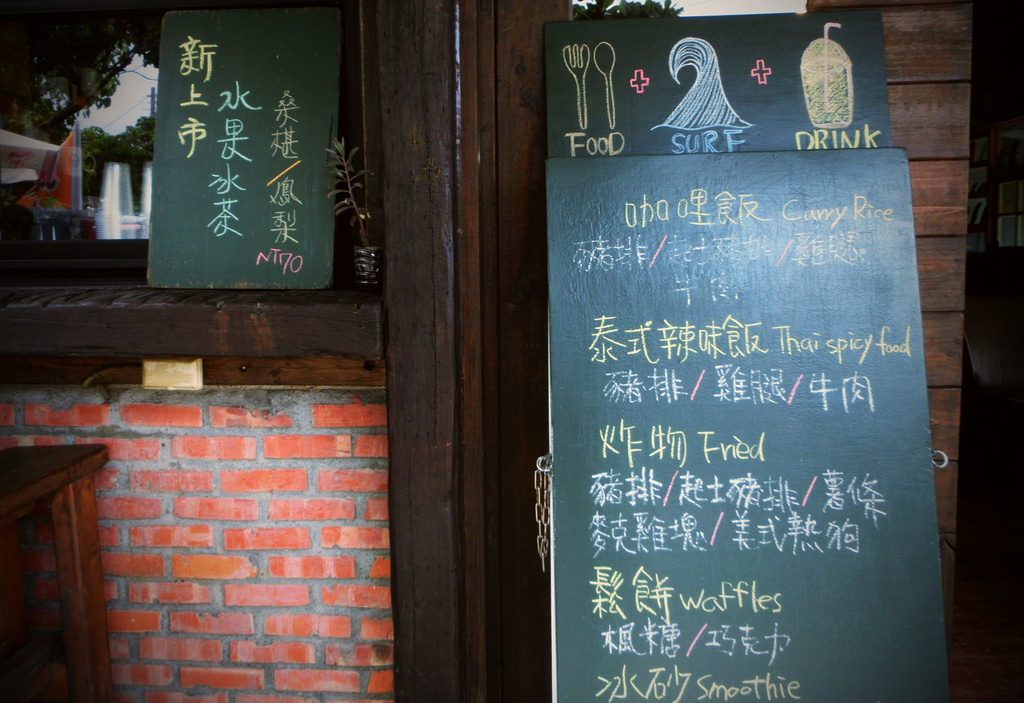 新上市
水果冰茶
桑椹/鳳梨
NT70
FOOD + SURF + DRINK
咖哩飯 Curry Rice
豬排/起士豬排/雞腿
牛肉
泰式辣味飯 Thai spicy food
豬排/雞腿/牛肉
炸物 Fried
豬排/起士豬排/薯條
麥克雞塊/美式熱狗
鬆餅 waffles
楓糖/巧克力
冰砂 smoothie